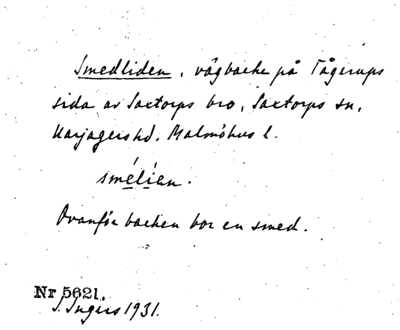 Smedliden, vägbacke på Tågerups
sida av Saxtorps bro, Saxtorps sn,
Harjagers hd. Malmöhus l.
smélien.
Ovanför backen bor en smed.
Nr 5621.
I. Ingers 1931.